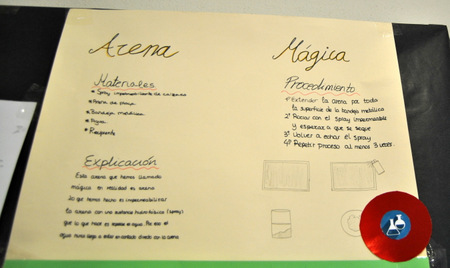 Arena Mágica
Materiales
Spray impermeabilizante de
Arena de playa
Bandeja metálica
Agua
Recipiente
Explicación
Esta arena que hemos llamado
mágica en realidad es arena
lo que hemos hecho es impermeabilizar
la arena con una sustancia hidrofóbica (spray)
que lo que hace es repeler el agua. Por eso el
agua nunca llega a estar en contacto directo con la arena
Procedimiento
1º Extender la arena por toda
la superficie de la bandeja metálica
2º Rociar con el spray impermeable
y esperar a que se seque
3º Volver a echar el spray
4º Repetir proceso al menos 3 veces.